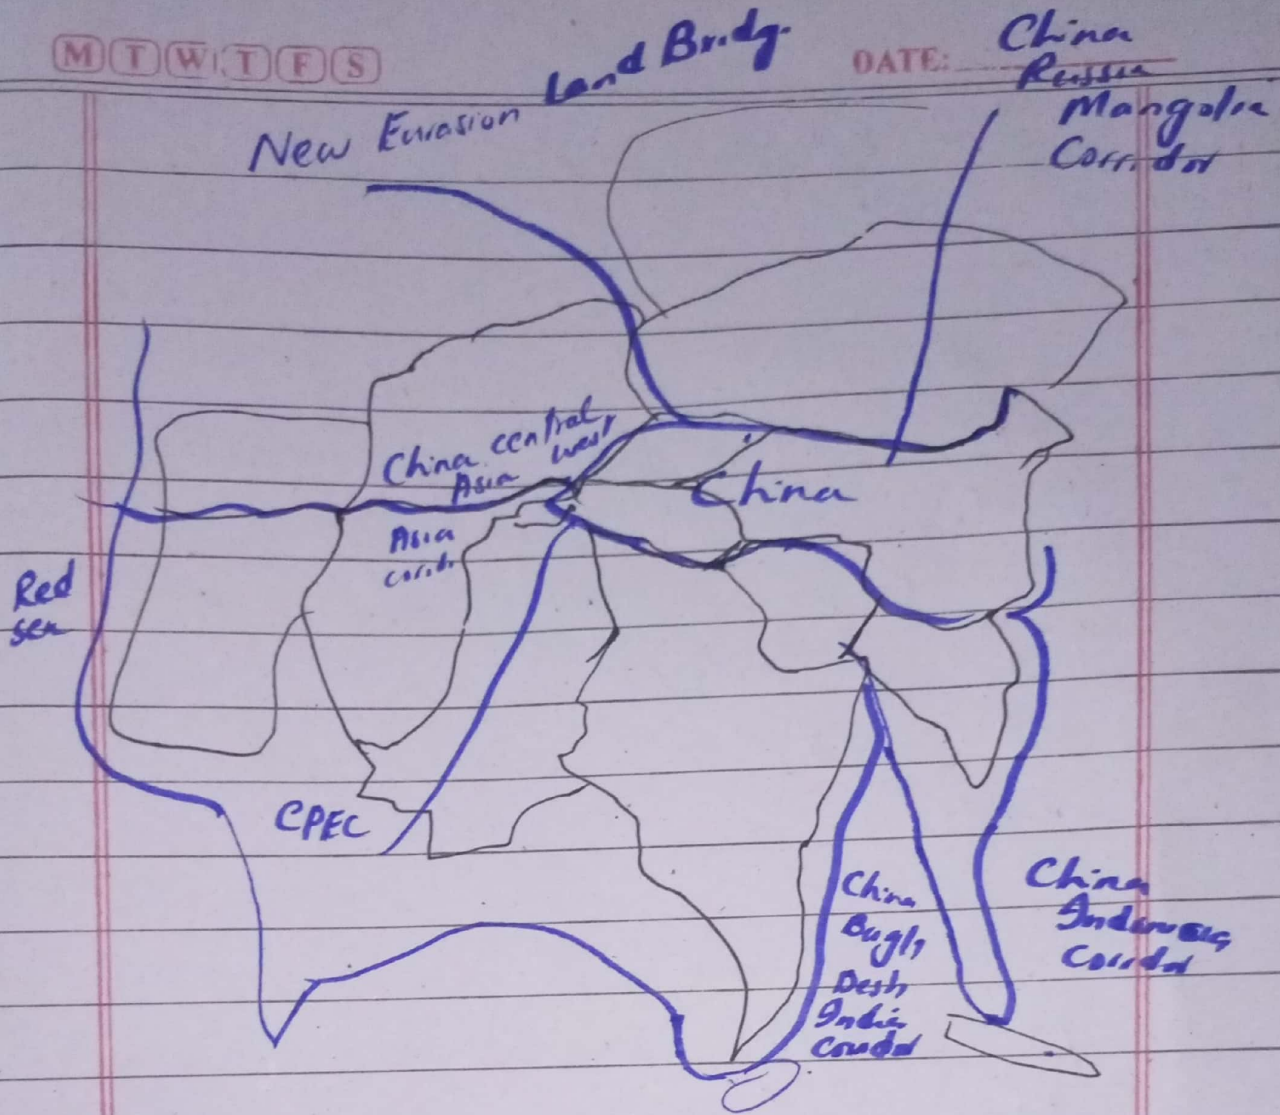 M T W T F S
DATE:
New Eurasion Land Bridg.
China
Russia
Mangolia
Corridor
China central
Asia west
Asia
Corid.
China
Red
sea
CPEC
China
Bagla
Desh
India
Coridor
China
Indonesia
Corridor